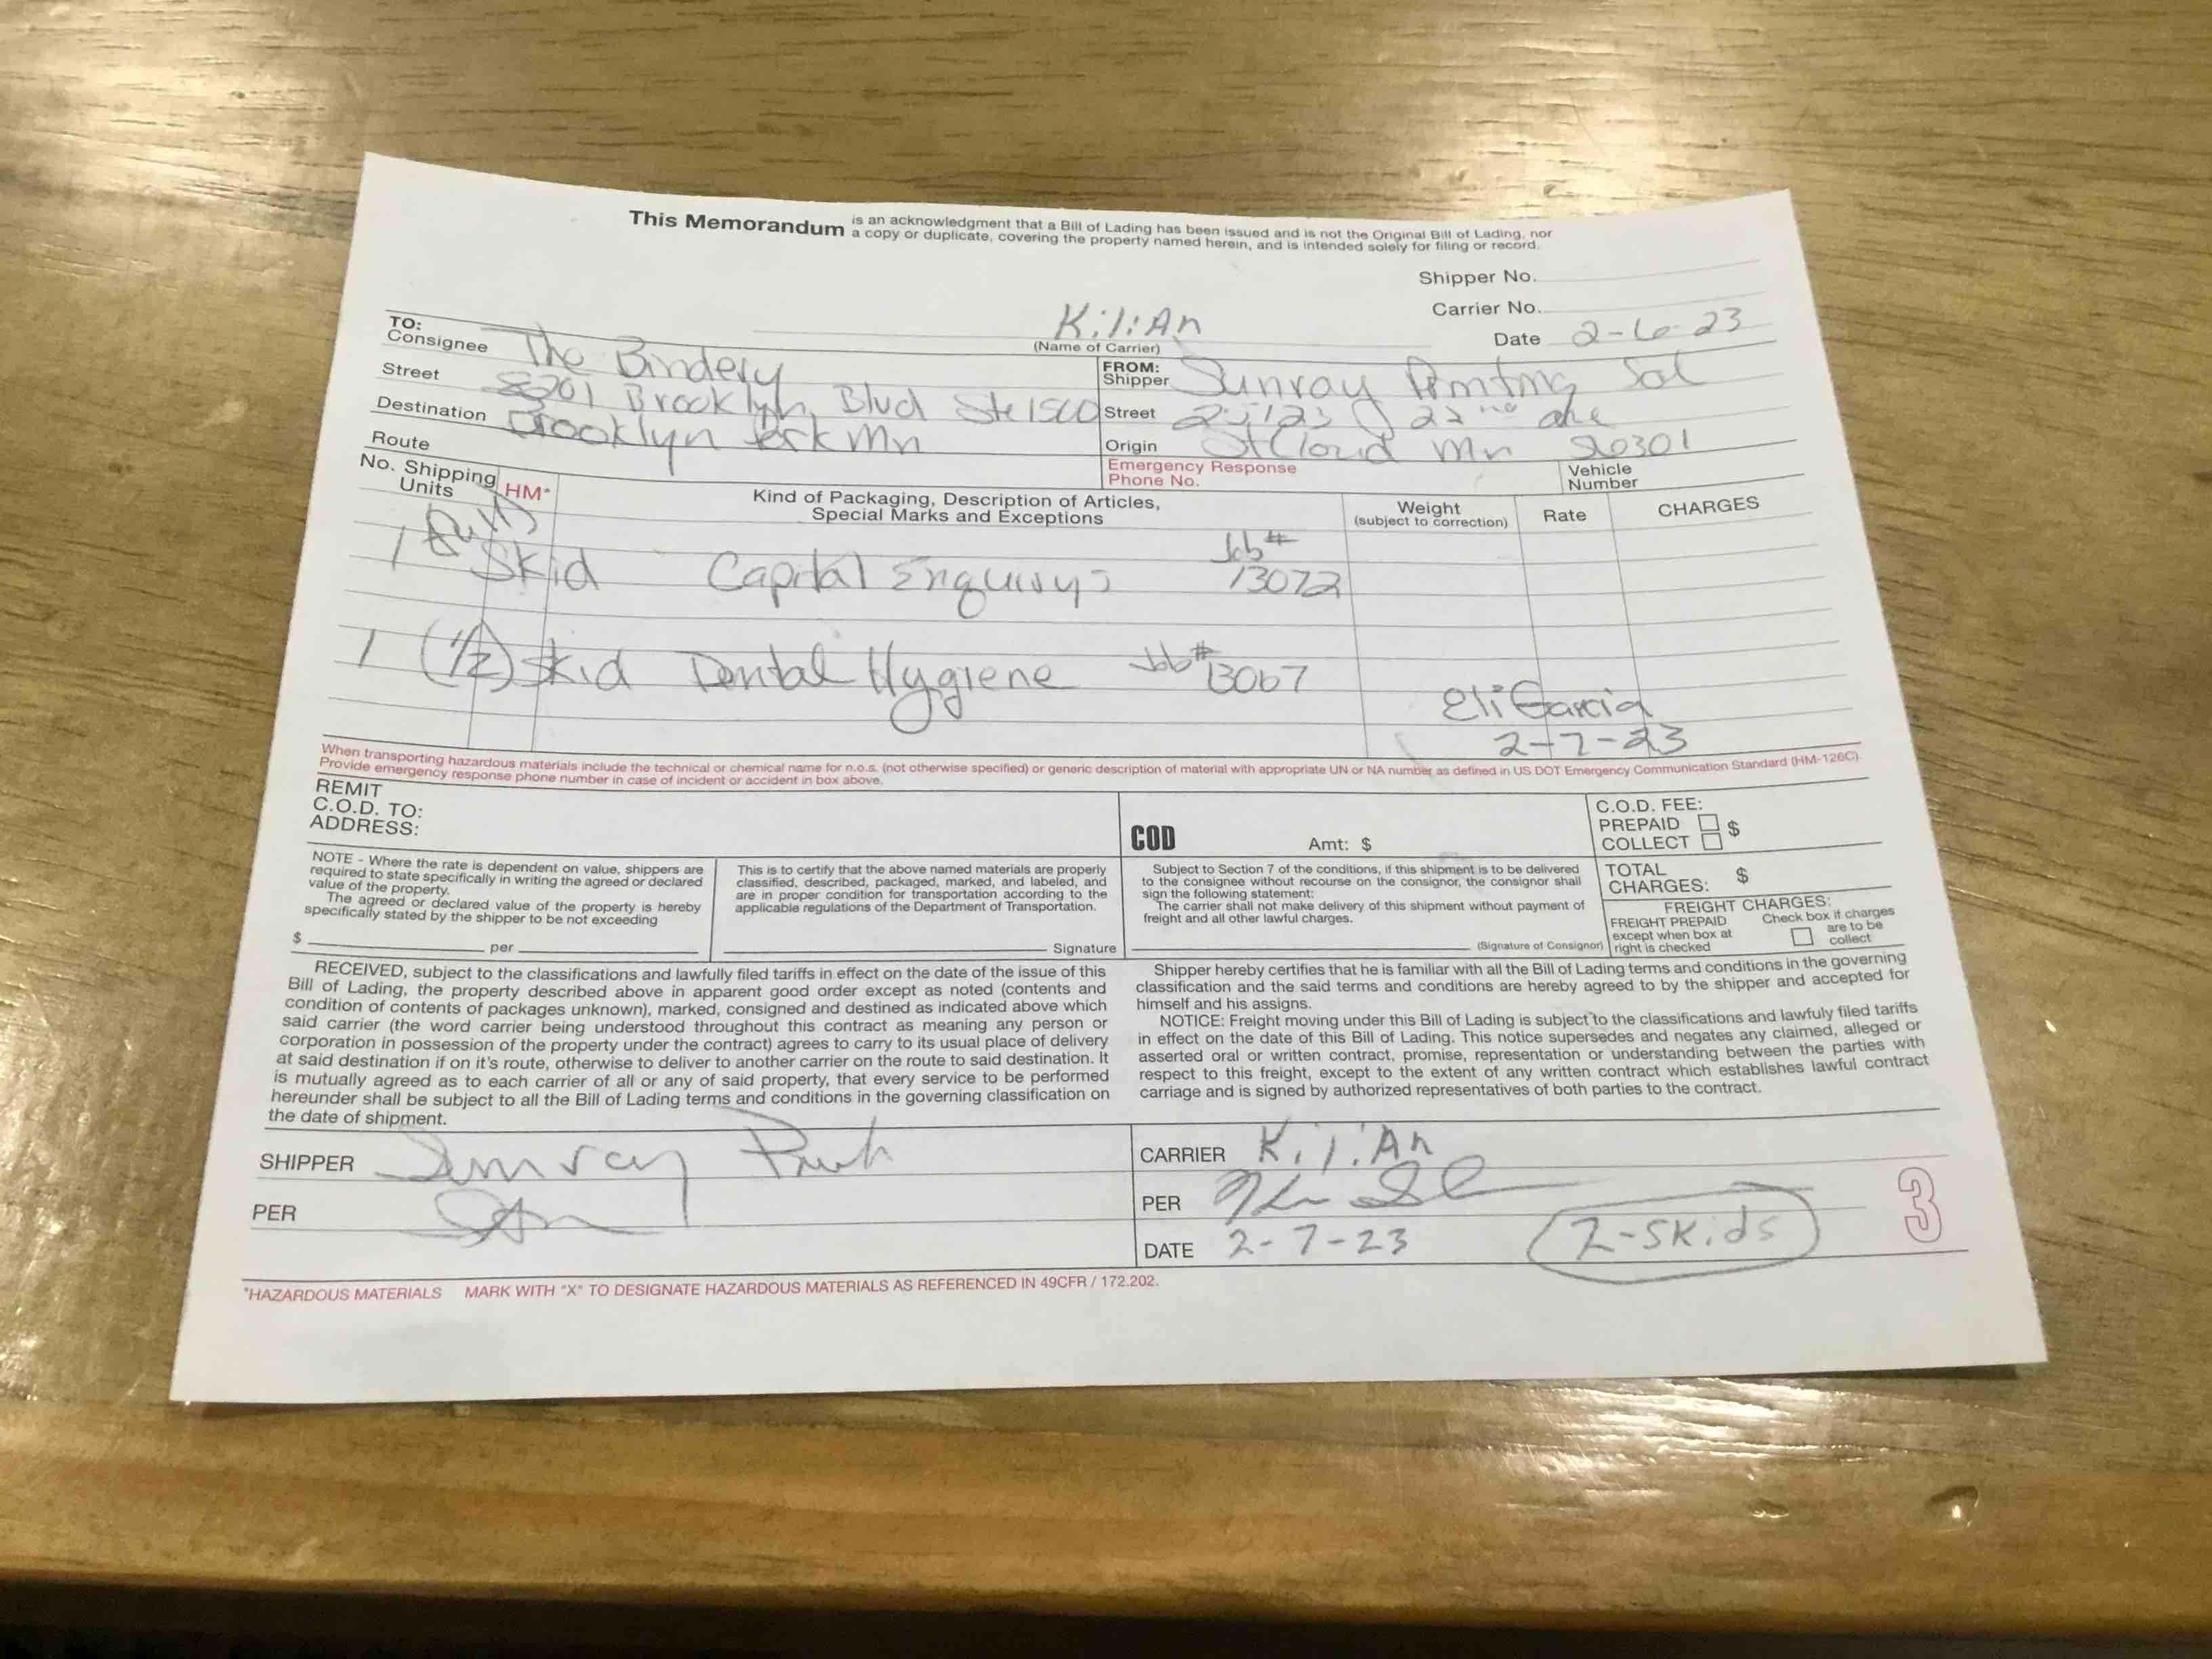 This Memorandum is an acknowledgment that a Bill of Lading has been issued and is not the Original Bill of Lading, nor
a copy or duplicate, covering the property named herein, and is intended solely for filing or record.
Shipper No.
Carrier No.
Date 2-6-23
KiliAn
(Name of Carrier)
TO:
Consignee The Bindery
Street 8201 Brooklyn Blvd Ste 1500
Destination Brooklyn Park Mn
Route
FROM:
Shipper Sunray Printing Sol
Street 25123 22nd ave
Origin St Cloud Mn 56301
Emergency Response
Phone No.
Vehicle
Number
No. Shipping
Units
HM*
Kind of Packaging, Description of Articles,
Special Marks and Exceptions
Weight
(subject to correction)
Rate
CHARGES
1 (full) Skid Capital Enquirys Job# 13072
1 (1/2) Skid Dental Hygiene Job# 13067
Eli Garcia
2-7-23
When transporting hazardous materials include the technical or chemical name for n.o.s. (not otherwise specified) or generic description of material with appropriate UN or NA number as defined in US DOT Emergency Communication Standard (HM-126C).
Provide emergency response phone number in case of incident or accident in box above.
REMIT
C.O.D. TO:
ADDRESS:
COD
Amt: $
C.O.D. FEE:
PREPAID $
COLLECT
NOTE - Where the rate is dependent on value, shippers are
required to state specifically in writing the agreed or declared
value of the property.
The agreed or declared value of the property is hereby
specifically stated by the shipper to be not exceeding
$ per
This is to certify that the above named materials are properly
classified, described, packaged, marked, and labeled, and
are in proper condition for transportation according to the
applicable regulations of the Department of Transportation.
Signature
Subject to Section 7 of the conditions, if this shipment is to be delivered
to the consignee without recourse on the consignor, the consignor shall
sign the following statement:
The carrier shall not make delivery of this shipment without payment of
freight and all other lawful charges.
(Signature of Consignor)
TOTAL
CHARGES: $
FREIGHT CHARGES:
FREIGHT PREPAID
except when box at
right is checked
Check box if charges
are to be
collect
RECEIVED, subject to the classifications and lawfully filed tariffs in effect on the date of the issue of this
Bill of Lading, the property described above in apparent good order except as noted (contents and
condition of contents of packages unknown), marked, consigned and destined as indicated above which
said carrier (the word carrier being understood throughout this contract as meaning any person or
corporation in possession of the property under the contract) agrees to carry to its usual place of delivery
at said destination if on it's route, otherwise to deliver to another carrier on the route to said destination. It
is mutually agreed as to each carrier of all or any of said property, that every service to be performed
hereunder shall be subject to all the Bill of Lading terms and conditions in the governing classification on
the date of shipment.
Shipper hereby certifies that he is familiar with all the Bill of Lading terms and conditions in the governing
classification and the said terms and conditions are hereby agreed to by the shipper and accepted for
himself and his assigns.
NOTICE: Freight moving under this Bill of Lading is subject to the classifications and lawfuly filed tariffs
in effect on the date of this Bill of Lading. This notice supersedes and negates any claimed, alleged or
asserted oral or written contract, promise, representation or understanding between the parties with
respect to this freight, except to the extent of any written contract which establishes lawful contract
carriage and is signed by authorized representatives of both parties to the contract.
SHIPPER Sunray
PER
CARRIER KiliAn
PER
DATE 2-7-23
2-SKids
3
*HAZARDOUS MATERIALS MARK WITH "X" TO DESIGNATE HAZARDOUS MATERIALS AS REFERENCED IN 49CFR / 172.202.